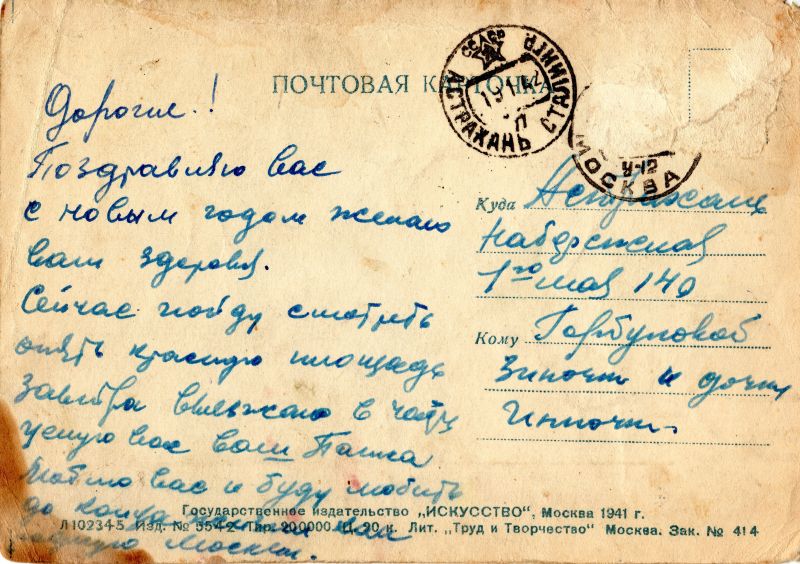 ПОЧТОВАЯ КАРТОЧКА
СССР
АСТРАХАНЬ
МОСКВА
У-12
Дорогие!
Поздравляю вас
с новым годом желаю
вам здоровья.
Сейчас пойду смотреть
опять красную площадь
Завтра выезжаю в часть
целую вас ваш Папка
Люблю вас и буду любить
до конца жизни
Москвы.
Куда Астрахань
Набережная
1го мая 140
Кому Горбуновой
Зиночки и дочки
Инночки.
Государственное издательство „ИСКУССТВО“, Москва 1941 г.
Л102345 Изд. № 5542 Тир. 200000. Ц. 20 к. Лит. „Труд и Творчество“ Москва. Зак. № 414